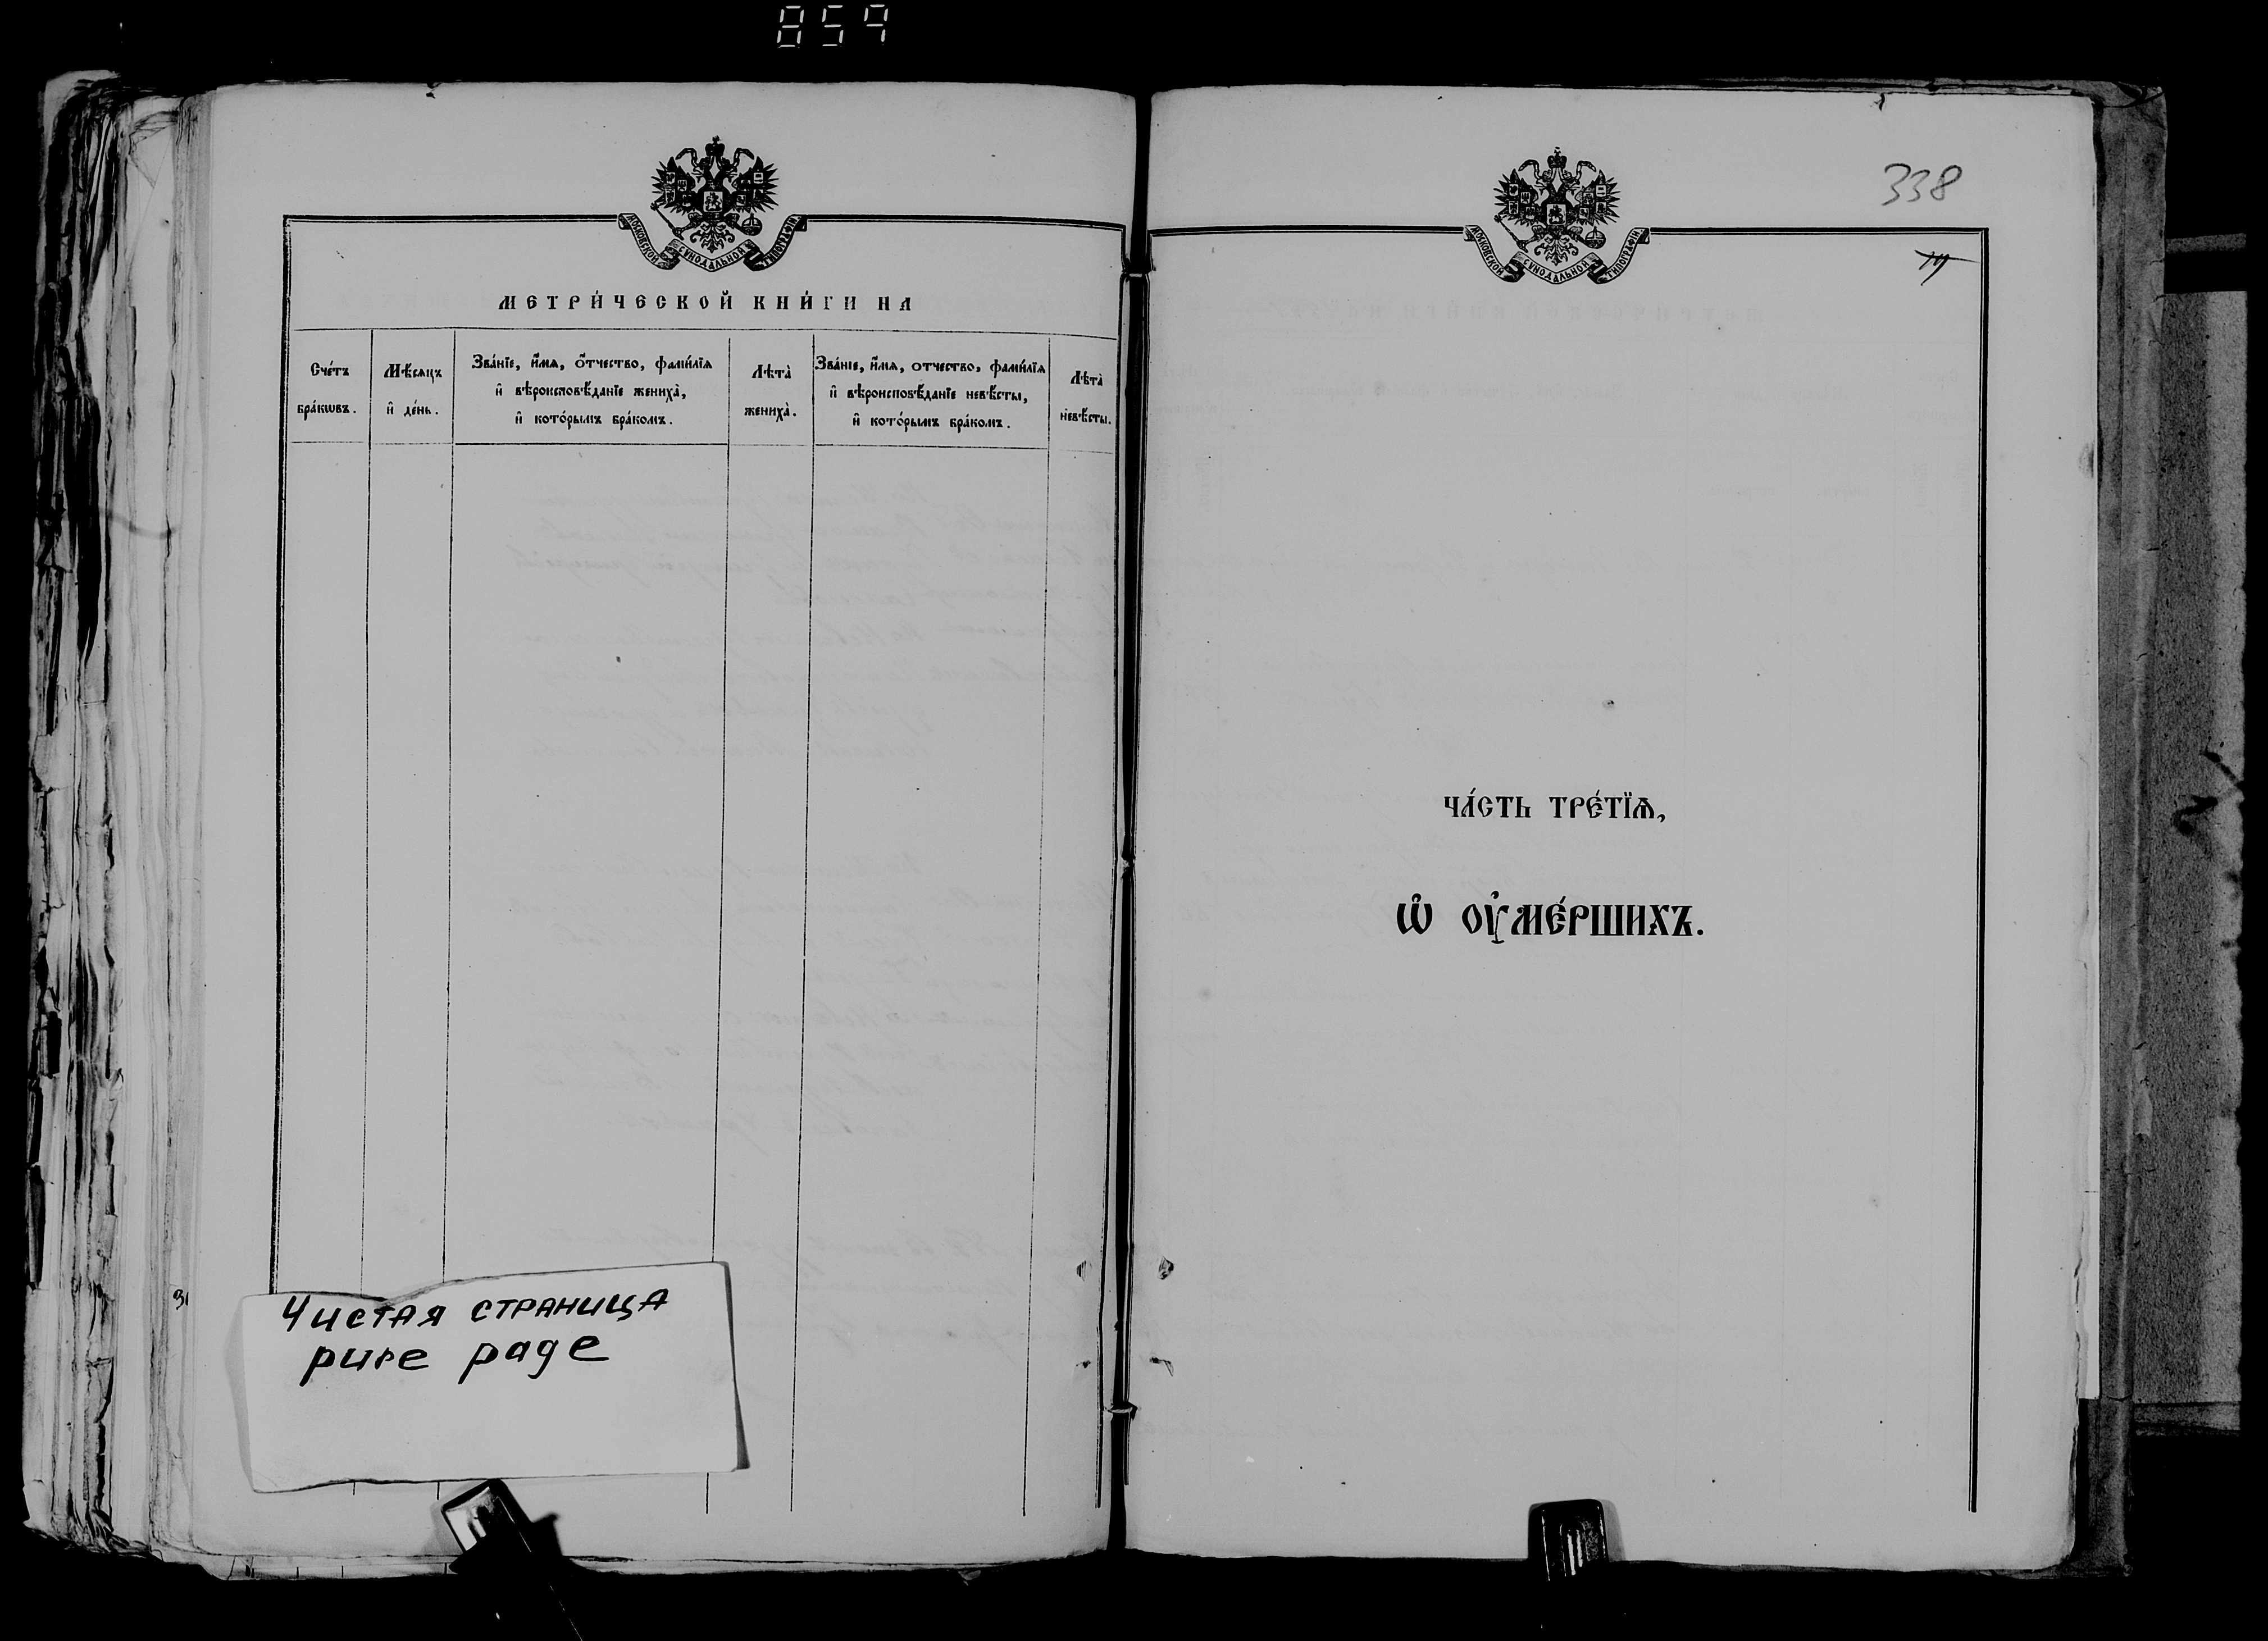 859
МОСКОВСКОЙ СѴНОДАЛЬНОЙ ТИПОГРАФІИ
МЕТРИ́ЧЕСКОЙ КНИ́ГИ НА
Сче́тъ бра́кѡвъ.
Мѣ́сяцъ и҆ де́нь.
Зва́нїе, и҆́мя, ѻ҆́тчество, фами́лїя
и҆ вѣроисповѣ́данїе жениха̀,
и҆ кото́рымъ бра́комъ.
Лѣта̀ жениха̀.
Зва́нїе, и҆́мя, отчество, фами́лїя
и҆ вѣроисповѣ́данїе невѣ́сты,
и҆ кото́рымъ бра́комъ.
Лѣта̀ невѣ́сты.
Чистая страница
pure page
338
МОСКОВСКОЙ СѴНОДАЛЬНОЙ ТИПОГРАФІИ
ЧА́СТЬ ТРЕ́ТЇѦ,
Ѡ҆ ОУ҆МЕ́РШИХЪ.